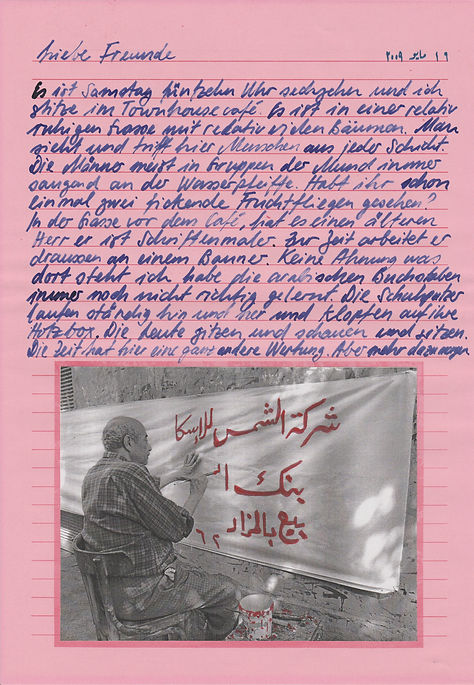 Liebe Freunde ١٦ مايو ٢٠٠٩
Es ist Samstag fünfzehn Uhr sechzehn und ich
sitze im Townhousecafé. Es ist in einer relativ
ruhigen Gasse mit relativ vielen Bäumen. Man
sieht und triff hier Menschen aus jeder Schicht.
Die Männer meist in Gruppen der Mund immer
saugend an der Wasserpfeiffe. Habt ihr schon
einmal zwei fickende Fruchtfliegen gesehen?
In der Gasse vor dem Café, hat es einen älteren
Herr er ist Schriftenmaler. Zur Zeit arbeitet er
draussen an einem Banner. Keine Ahnung was
dort steht ich habe die arabischen Buchstaben
immer noch nicht richtig gelernt. Die Schuhputzer
laufen ständig hin und her und klopfen auf ihre
Holzbox. Die Leute sitzen und schauen und sitzen.
Die Zeit hat hier eine ganz andere Wertung. Aber mehr dazu morgen
شركة الشمس للإسكا
بنك ال
بيع بالمزاد
٦٢